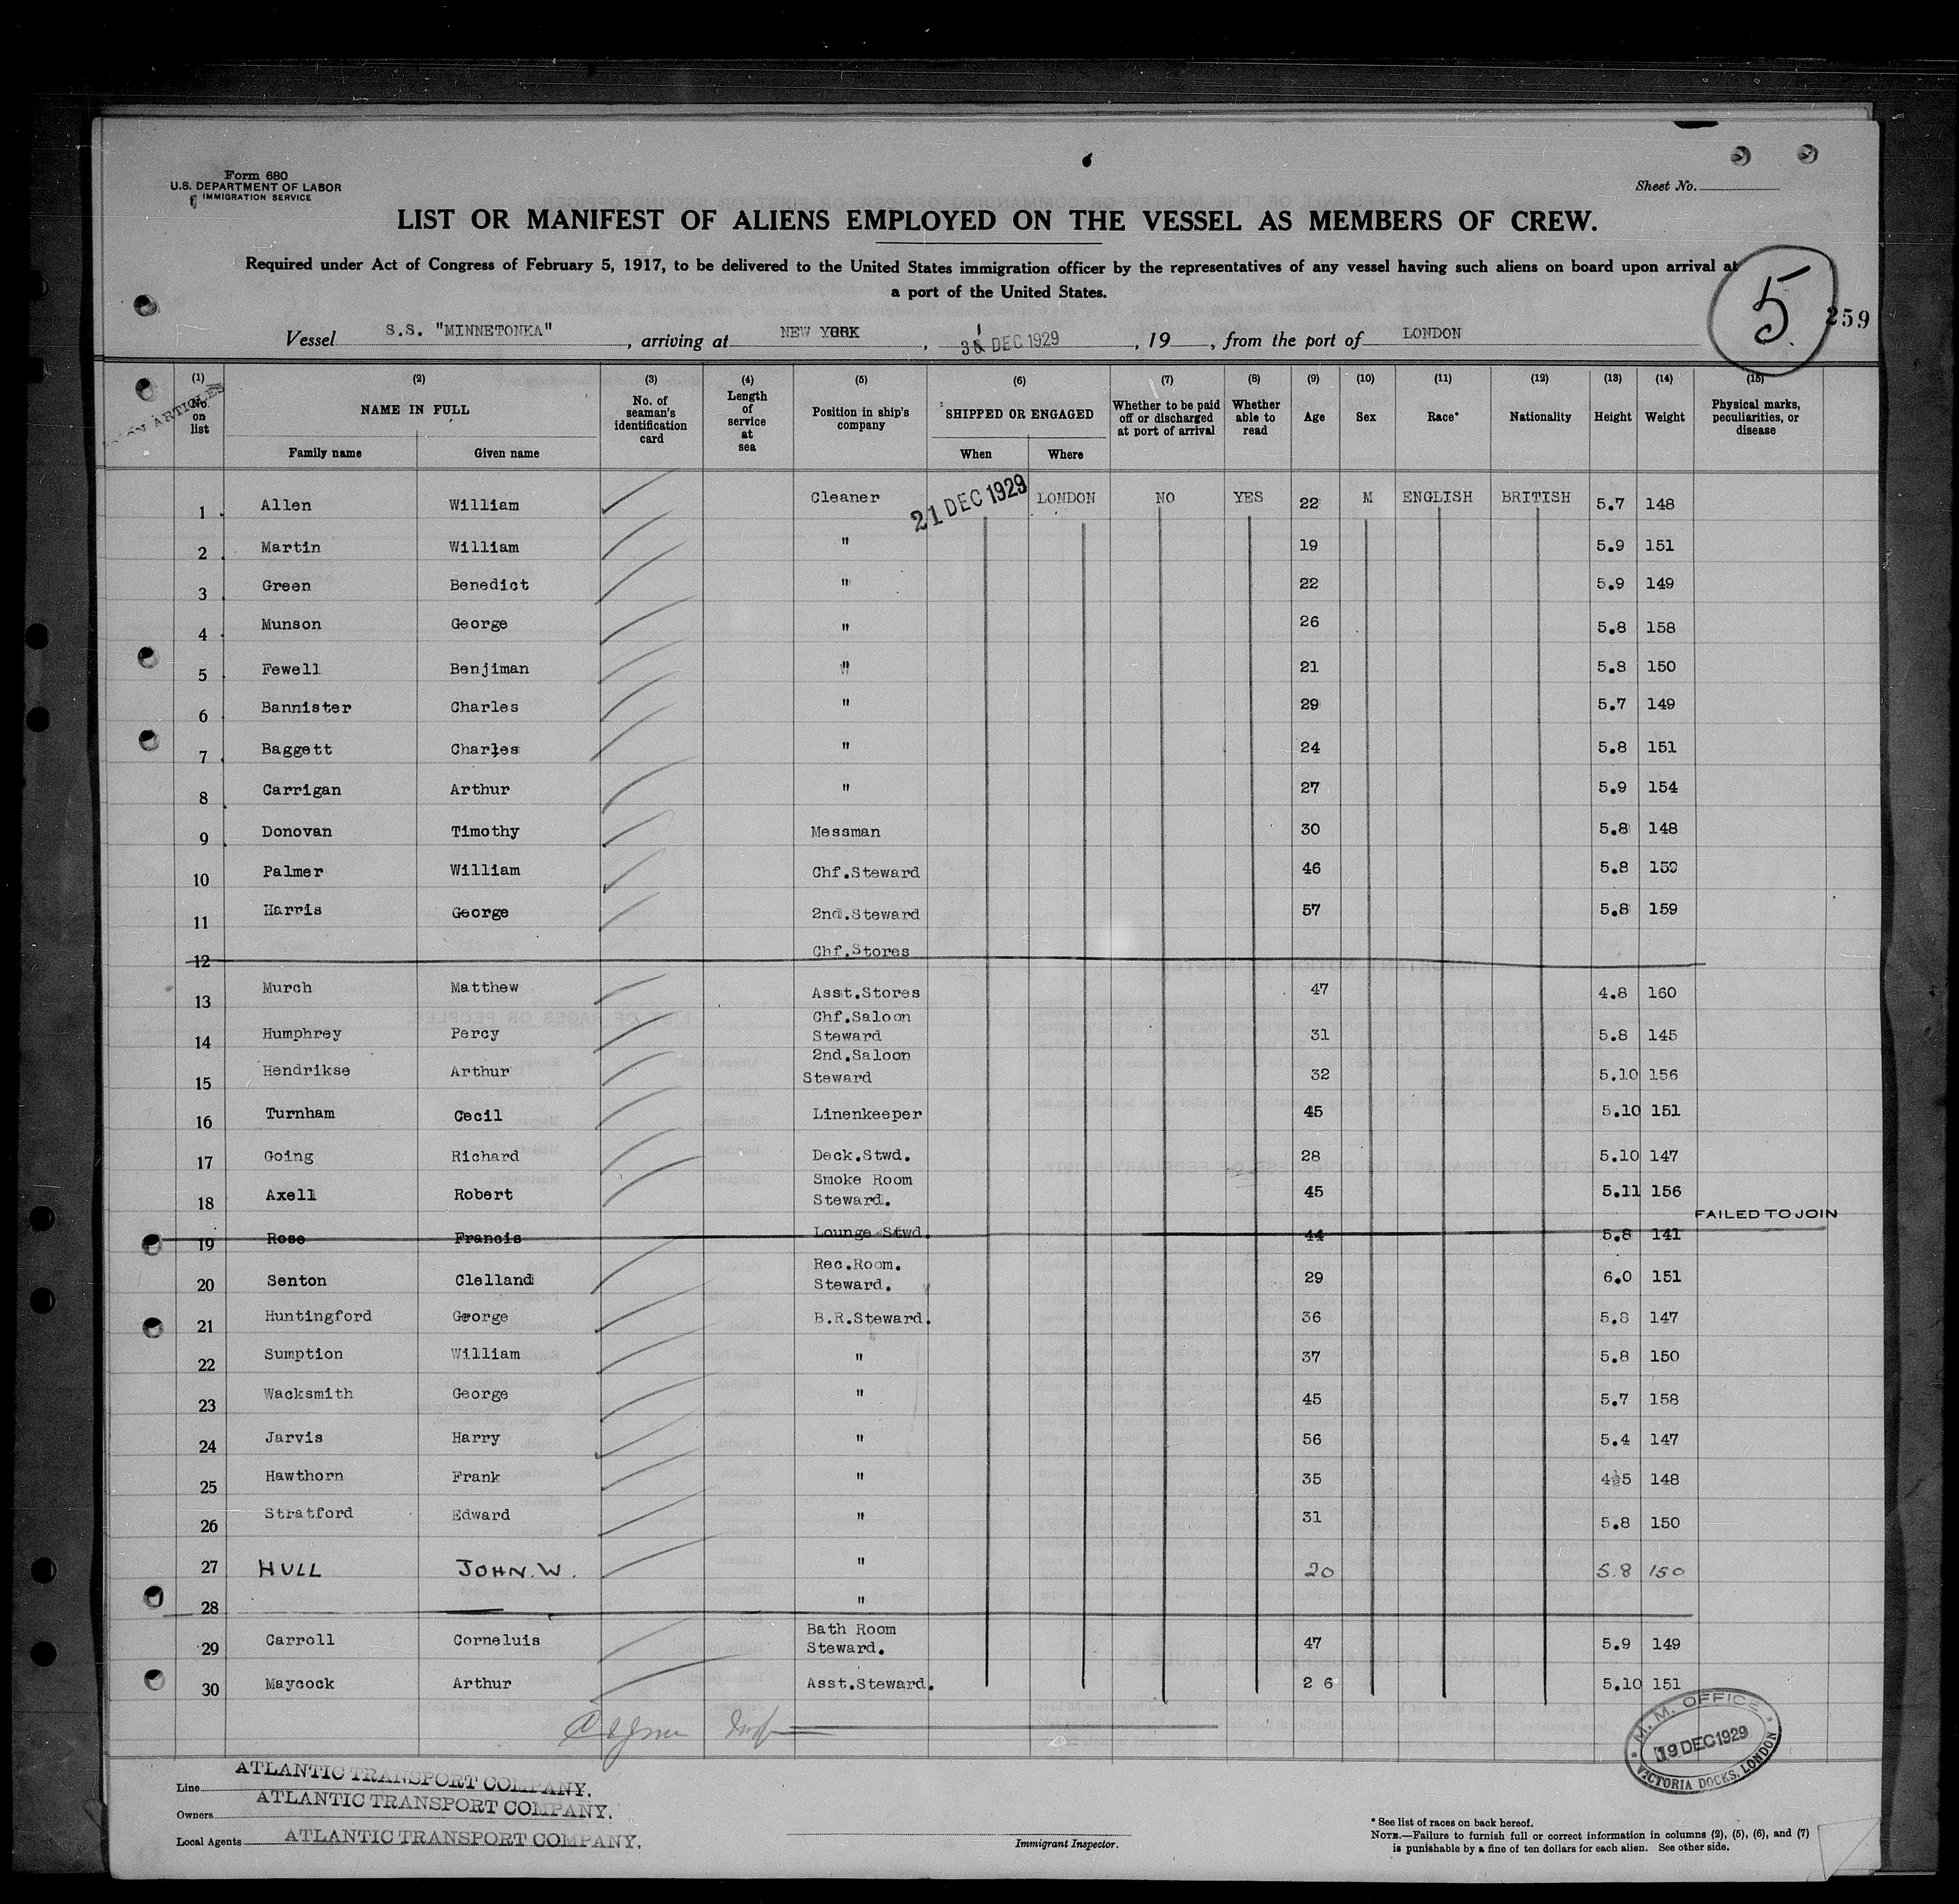 Form 680
U.S. DEPARTMENT OF LABOR
IMMIGRATION SERVICE
Sheet No.
LIST OR MANIFEST OF ALIENS EMPLOYED ON THE VESSEL AS MEMBERS OF CREW.
Required under Act of Congress of February 5, 1917, to be delivered to the United States immigration officer by the representatives of any vessel having such aliens on board upon arrival at
a port of the United States.
5
259
Vessel S.S. "MINNETONKA", arriving at NEW YORK, DEC 1929, 19, from the port of LONDON
ARTICLES
(1) No. on list
(2) NAME IN FULL Family name Given name
(3) No. of seaman's identification card
(4) Length of service at sea
(5) Position in ship's company
(6) SHIPPED OR ENGAGED When Where
(7) Whether to be paid off or discharged at port of arrival
(8) Whether able to read
(9) Age
(10) Sex
(11) Race*
(12) Nationality
(13) Height
(14) Weight
(15) Physical marks, peculiarities, or disease
1 Allen William Cleaner 21 DEC 1929 LONDON NO YES 22 M ENGLISH BRITISH 5.7 148
2 Martin William " 19 5.9 151
3 Green Benedict " 22 5.9 149
4 Munson George " 26 5.8 158
5 Fewell Benjiman " 21 5.8 150
6 Bannister Charles " 29 5.7 149
7 Baggett Charles " 24 5.8 151
8 Carrigan Arthur " 27 5.9 154
9 Donovan Timothy Messman 30 5.8 148
10 Palmer William Chf.Steward 46 5.8 159
11 Harris George 2nd.Steward 57 5.8 159
12 Chf.Stores
13 Murch Matthew Asst.Stores 47 4.8 160
14 Humphrey Percy Chf.Saloon Steward 31 5.8 145
15 Hendrikse Arthur 2nd.Saloon Steward 32 5.10 156
16 Turnham Cecil Linenkeeper 45 5.10 151
17 Going Richard Deck.Stwd. 28 5.10 147
18 Axell Robert Smoke Room Steward. 45 5.11 156
19 Rose Francis Lounge Stwd. 44 5.8 141 FAILED TO JOIN
20 Senton Clelland Rec.Room. Steward. 29 6.0 151
21 Huntingford George B.R.Steward. 36 5.8 147
22 Sumption William " 37 5.8 150
23 Wacksmith George " 45 5.7 158
24 Jarvis Harry " 56 5.4 147
25 Hawthorn Frank " 35 148
26 Stratford Edward " 31 5.8 150
27 HULL JOHN. W. " 20 5.8 150
28 "
29 Carroll Corneluis Bath Room Steward. 47 5.9 149
30 Maycock Arthur Asst.Steward. 2 6 5.10 151
M. M. OFFICE
19 DEC 1929
VICTORIA DOCKS, LONDON
Line ATLANTIC TRANSPORT COMPANY.
Owners ATLANTIC TRANSPORT COMPANY.
Local Agents ATLANTIC TRANSPORT COMPANY.
Immigrant Inspector.
* See list of races on back hereof.
NOTE.—Failure to furnish full or correct information in columns (2), (5), (6), and (7)
is punishable by a fine of ten dollars for each alien. See other side.